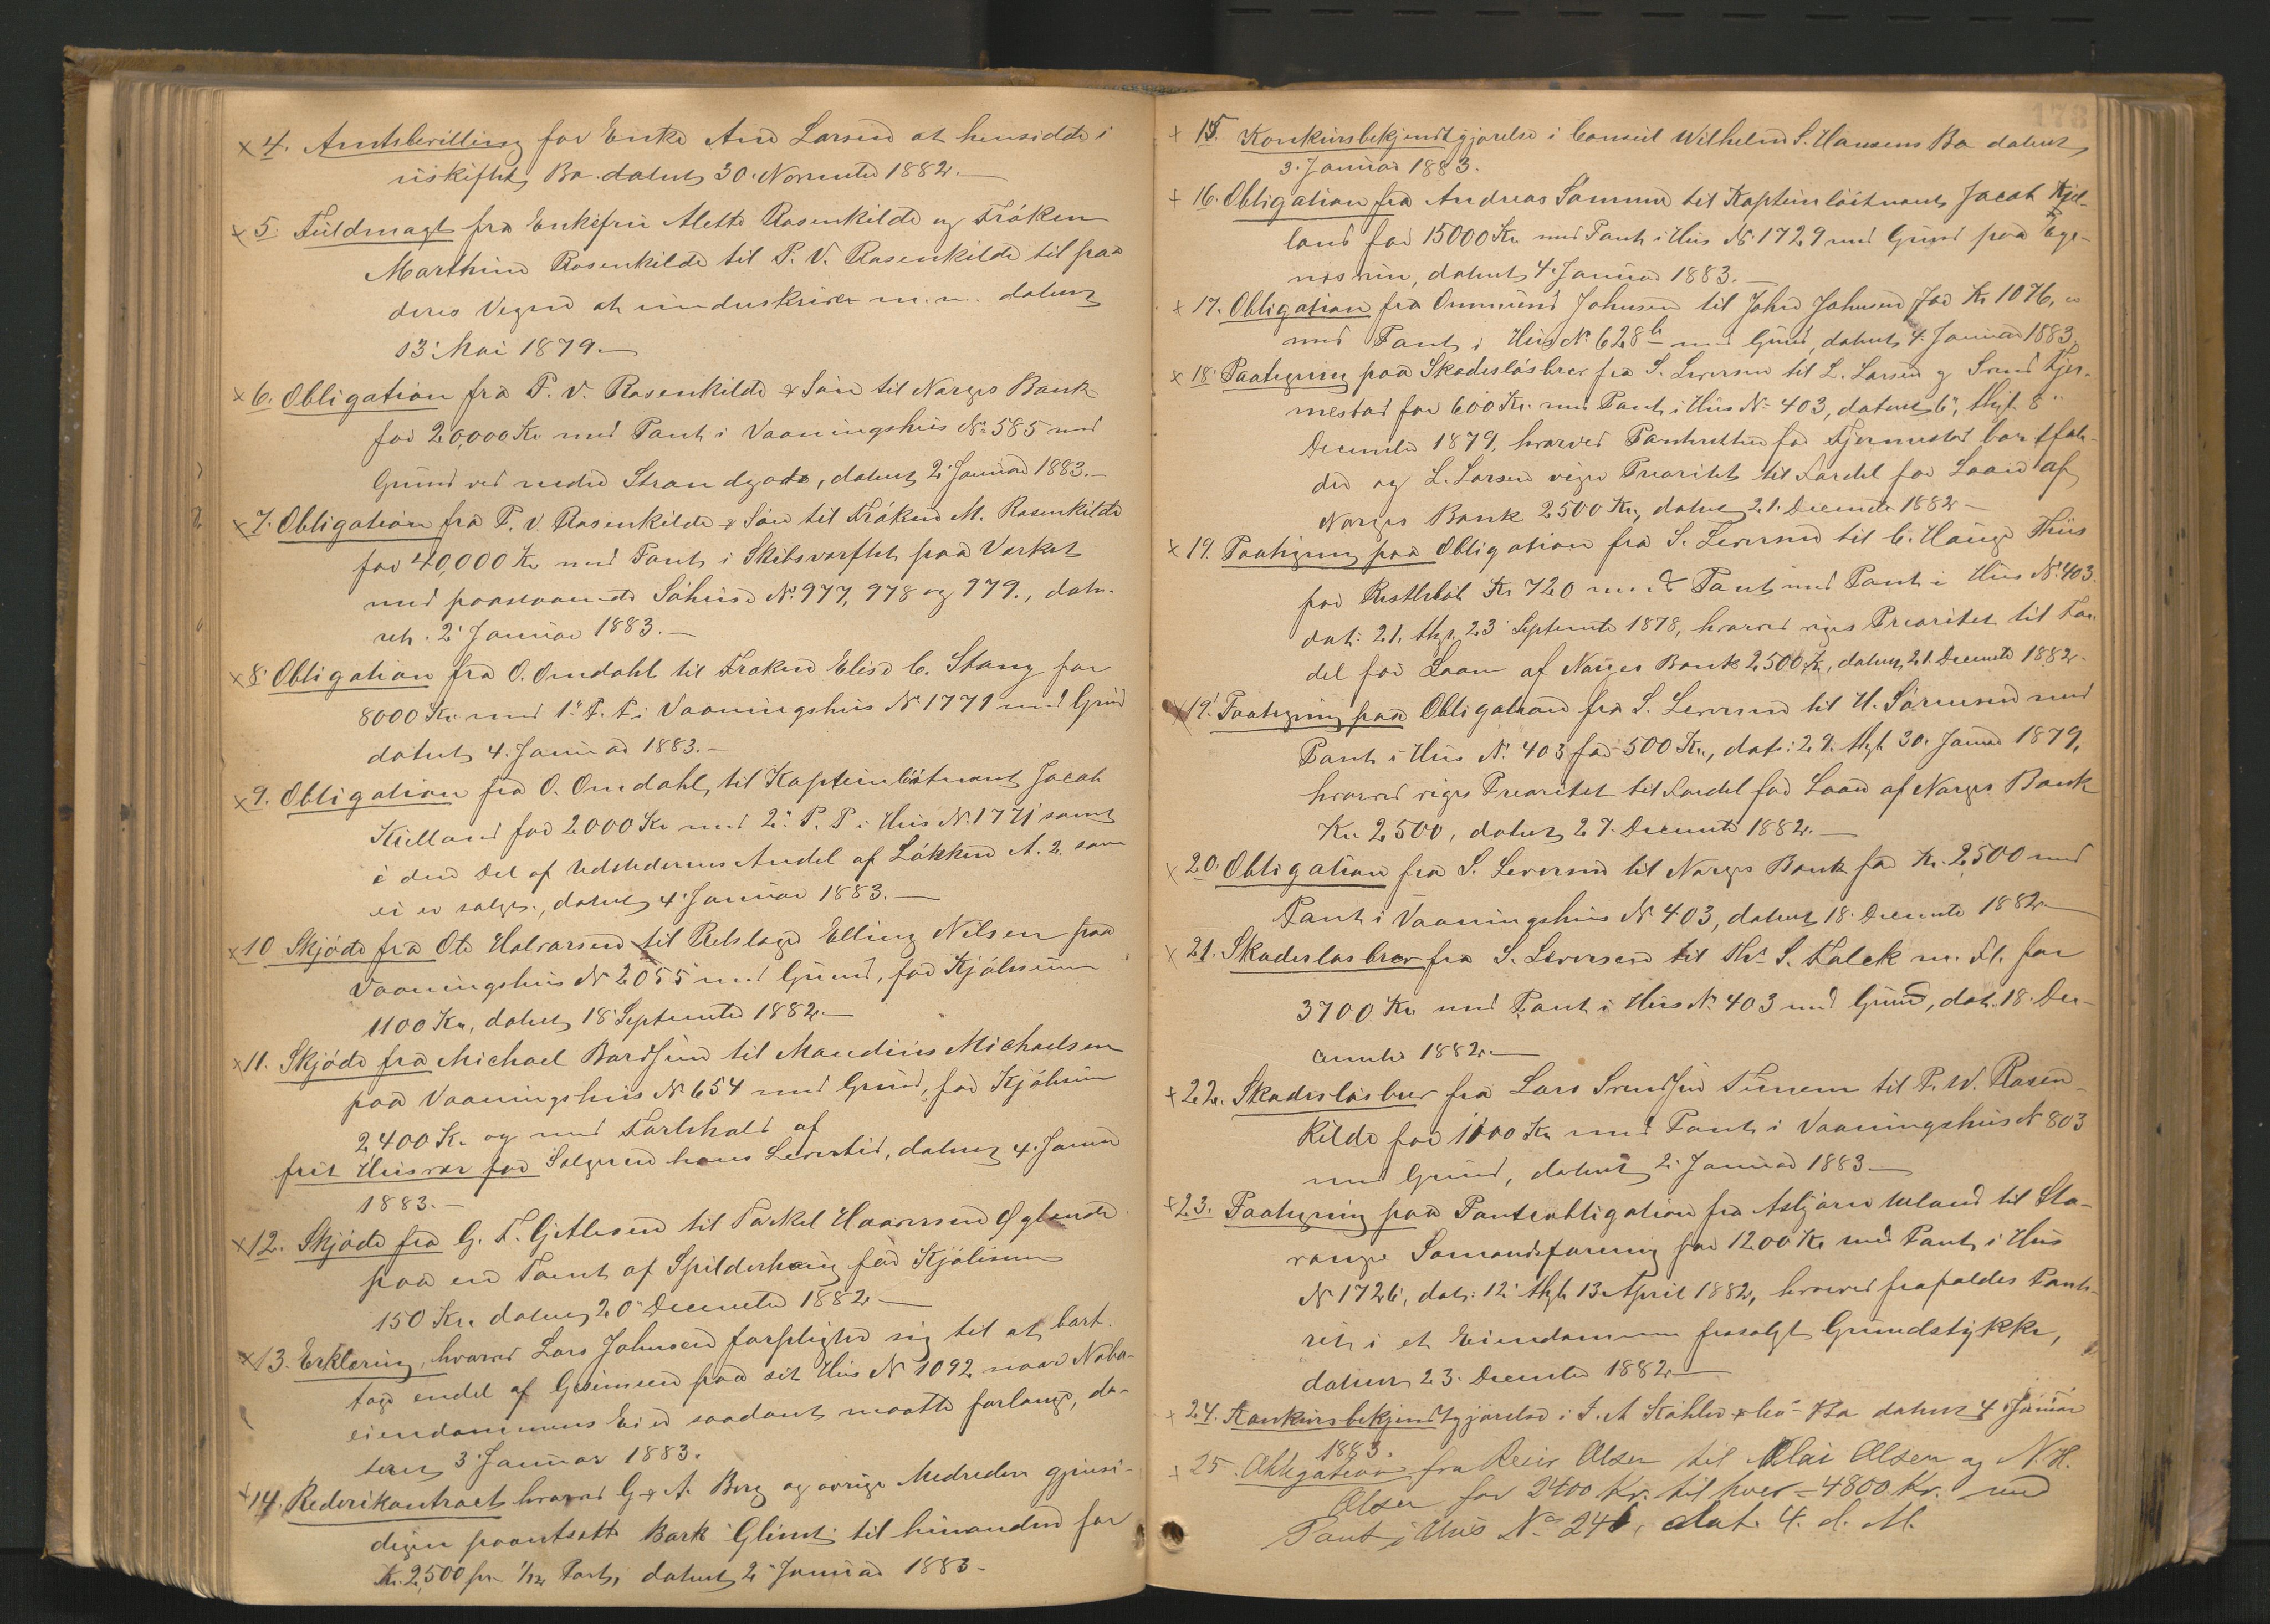 x 4. Amtsbevilling for Enke Ane Larsen at hensidde i
uskiftet Bo. dateret 30. November 1882.
x 5. Fuldmagt fra Enkefru Alette Rosenkilde og Fröken
Marthine Rosenkilde til P. V. Rosenkilde til paa
deres Vegne at underskrive m. m. dateret
13' Mai 1879.
x 6. Obligation fra P. V. Rosenkilde & Sön til Norges Bank
for 20,000 Kr med Pant i Vaaningshus No 585 med
Grund ved nedre Strandgade, dateret 2' Januar 1883.
x 7. Obligation fra P. V. Rosenkilde & Sön til Fröken M. Rosenkilde
for 40,000 Kr med Pant i Skibsverftet paa Verket
med paastaaende Söhuse No 977, 978 og 979., date-
ret. 2' Januar 1883.
x 8' Obligation fra O. Omdahl til Fröken Elise C. Stang for
8000 Kr. med 1' P. P. i Vaaningshus No 1771 med Grund
dateret 4. Januar 1883.
x 9. Obligation fra O. Omdahl, til Kapteinlöitnant Jacob
Kielland for 2000 Kr med 2' P. P. i Hus No. 1771 samt
i den Del af Udstederens Andel af Lökken A. 2. som
ei er solgt., dateret 4' Januar 1883.
x 10 Skjöde fra Ole Halvorsen til Rebslager Elling Nilsen paa
Vaaningshus No 2055 med Grund, for Kjöbesum
1100 Kr, dateret 18' September 1882.
x 11. Skjöde fra Michael Bardsen til Maudius Michaelsen
paa Vaaningshus No 654 med Grund, for Kjöbesum
2,400 Kr. og med Forbehold af
frit Husvær for Sælgeren hans Levetid, dateret 4. Januar
1883.
x 12. Skjöde fra G. F. Gjetlesen til Torkel Haaversen Oglænde
paa en Tomt af Spilderhaug for Kjöbesum
150 Kr. dateret 20' December 1882
x 13. Erklæring, hvorved Lars Johnsen forpligter sig til at bort-
tage endel af Gesimsen paa sit Hus No 1092 naar Nabo-
eiendommens Eier saadant maatte forlange, da-
teret 3' Januar 1883.
x 14. Rederikontract hvorved G. & A. Berg og övrige Medredere gjensi-
digen pantsatte Bark "Glimt" til hinanden for
Kr. 2,500 pr 1/12 Part, dateret 2' Januar 1883.
173
+ 15. Konkursbekjendtgjörelse i Consul Wilhelm S. Hansens Bo dateret
3. Januar 1883.
+ 16. Obligation fra Andreas Sömme til Kapteinlöitnant Jacob Kjel-
land for 15000 Kr med Pant i Hus No 1729 med Grund paa Ege-
næs min, dateret 4. Januar 1883.
x 17. Obligation fra Ommund Johnsen til John Johnsen for Kr 1076,
med Pant i Hus No 628b med Grund, dateret 4. Januar 1883,
x 18. Paategning paa Skadeslösbrev fra S. Seversen til L. Larsen og Svend Tjer-
mestad for 600 Kr. med Pant i Hus No 403, dateret 6', thgl. 8"
December 1879, hvorved Panteretten for Tjermestad bortfal-
der og L. Larsen viger Prioritet til Fordel for Laan af
Norges Bank 2500 Kr, dateret 21. December 1882
x 19. Paategning paa Obligation fra S. Seversen til C. Hauge Thiis
for Restbelöb Kr 720 med Pant med Pant i Hus No. 403.
dat: 21. thgl. 23' September 1878, hvorved viges Prioritet til For-
del for Laan af Norges Bank 2500 Kr, dateret 21. December 1882.
x 19' Paategning paa Obligation fra S. Seversen til H. Sörensen med
Pant i Hus No. 403 for 500 Kr., dat: 29. thgl. 30. Januar 1879,
hvorved viges Prioritet til Fordel for Laan af Norges Bank
Kr. 2,500, dateret 27. December 1882.
x 20. Obligation fra S. Seversen til Norges Bank for Kr. 2,500 med
Pant i Vaaningshus No. 403, dateret 18. December 1882
x 21. Skadeslösbrev fra S. Seversen til Ths S. Falck m. Fl. for
3700 Kr med Pant i Hus No 403 med Grund, dat. 18. De-
cember 1882.
x 22. Skadeslösbrev fra Lars Svendsen Tunem til P. W. Rosen-
kilde for 1100 Kr med Pant i Vaaningshus No 803
med Grund, dateret 2. Januar 1883
x 23. Paategning paa Panteobligation fra Asbjörn Ueland til Sta-
vanger Sömandsforening for 1200 Kr med Pant i Hus
No 1726, dat: 12' thgl. 13 April 1882, hvorved frafaldes Pante-
ret i et Eiendommen frasolgt Grundstykke,
dateret 23. December 1882
x 24. Konkursbekjendtgjörelse i J. A Köhler & Co's Bo dateret 4 Januar
1883.
+ 25. Obligation fra Reier Olsen til Olai Olsen og N. H.
Olsen for 2400 Kr. til hver = 4800 Kr. med
Pant i Hus No 246, dat. 4. d. M.